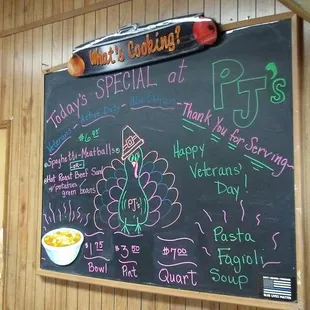 What's Cooking?
Today's SPECIAL at PJ's
Veterans
$6.95
Thank You for Serving
Spaghetti & Meatballs
Hot Roast Beef Sand
w/potatoes
green beans
Happy
Veterans'
Day!
PJ's
$1.75
Bowl
$3.50
Pint
$7.00
Quart
Pasta
Fagioli
Soup